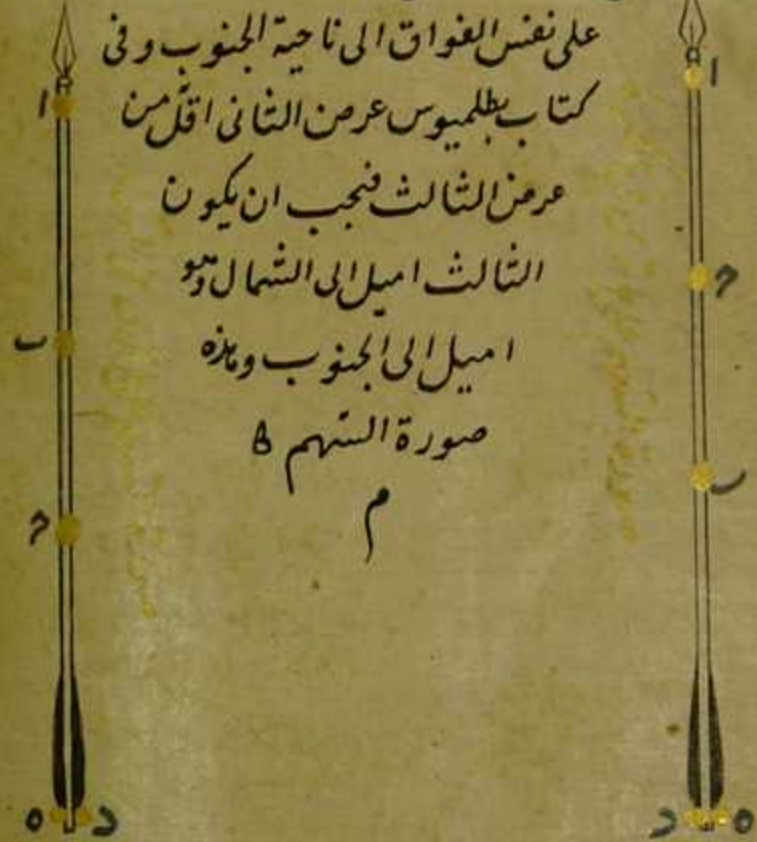 على نفس الفواق الى ناحية الجنوب وفى
كتاب بطلميوس عرض الثانى اقل من
عرض الثالث فيجب ان يكون
الثالث اميل الى الشمال وهو
اميل الى الجنوب وهذه
صورة السهم
م
ا
ب
ح
د
ه
ا
ح
ب
د
ه